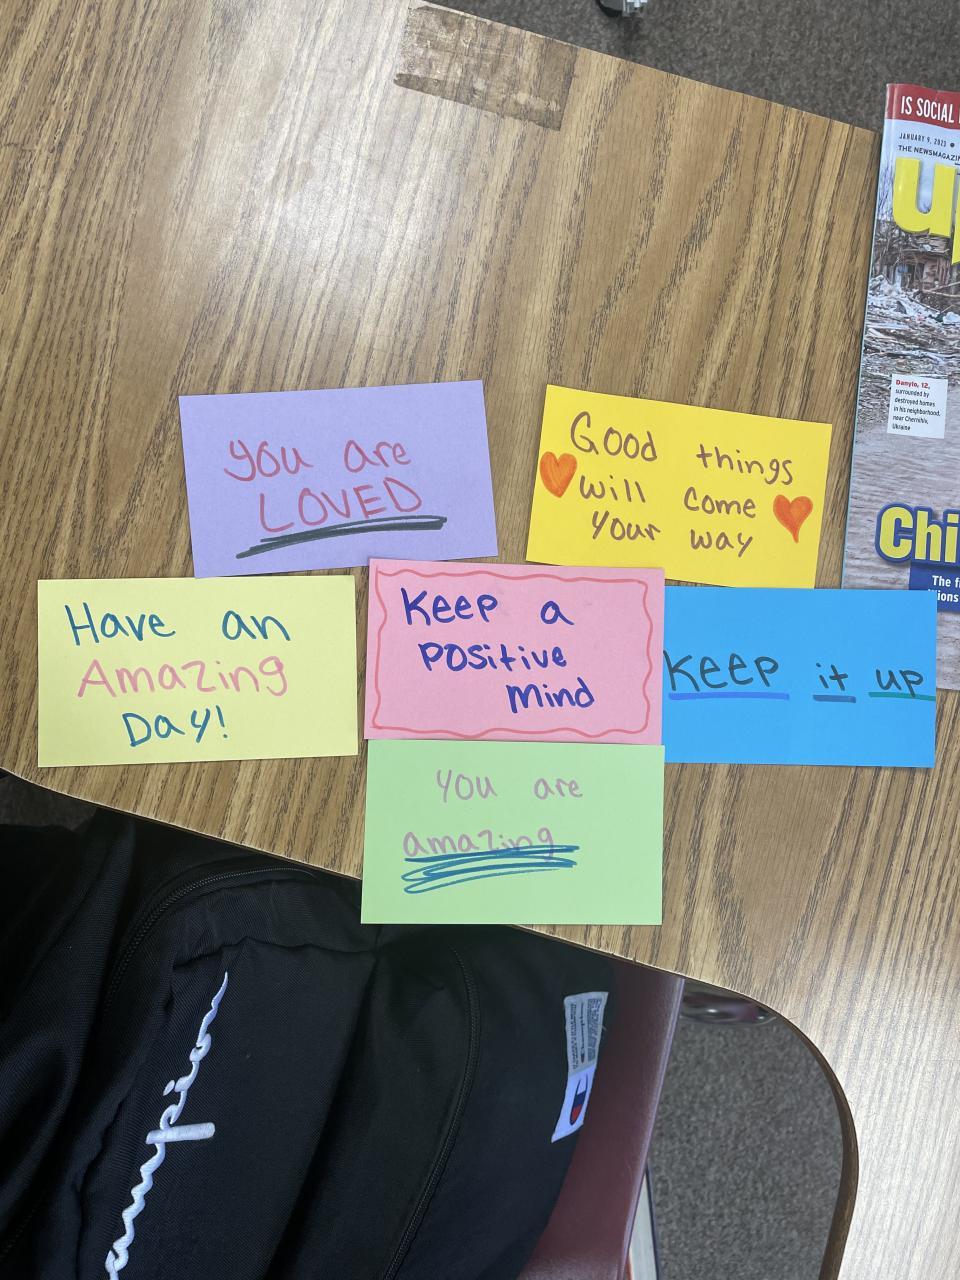 IS SOCIAL
JANUARY 9, 2023 •
THE NEWSMAGAZIN
Danylo, 12,
surrounded by
destroyed homes
in his neighborhood,
near Chernihiv,
Ukraine
Chi
The fi
you are
LOVED
Good things
will come
your way
Have an
Amazing
Day!
Keep a
positive
mind
KEEP it up
you are
amazing
Champion